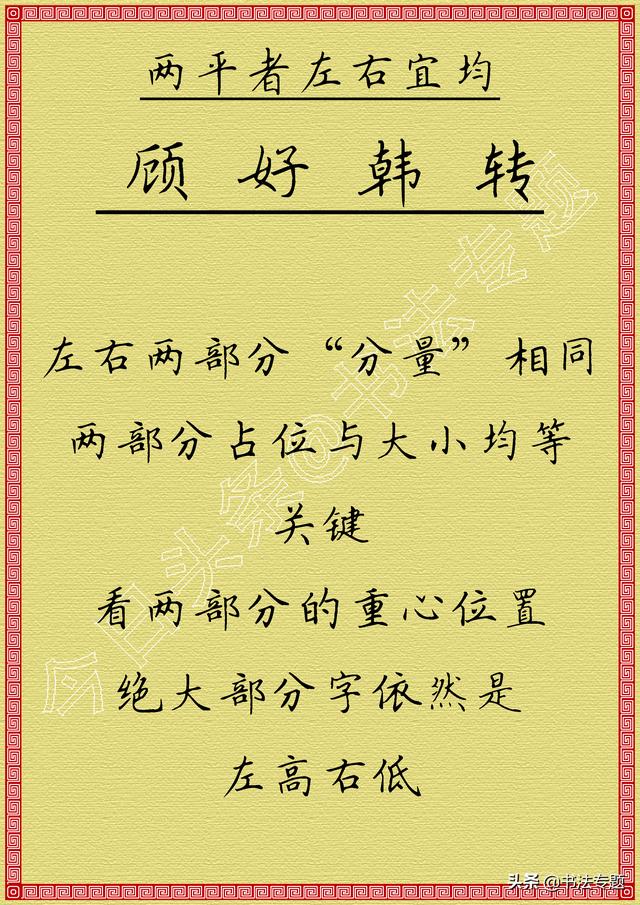 两平者左右宜均
顾 好 韩 转
左右两部分“分量”相同
两部分占位与大小均等
关键
看两部分的重心位置
绝大部分字依然是
左高右低
今日头条@书法专题
头条@书法专题